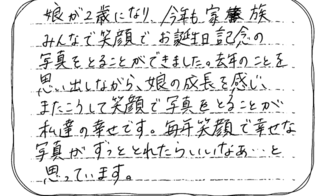 娘が2歳になり、今年も家族
みんなで笑顔でお誕生日記念の
写真をとることができました。去年のことを
思い出しながら、娘の成長を感じ、
またこうして笑顔で写真をとることが
私達の幸せです。毎年笑顔で幸せな
写真が、ずっととれたら、いいなあ…と
思っています。